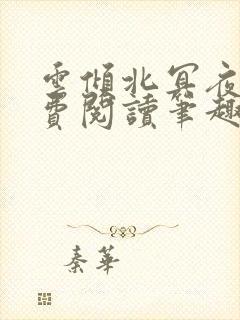 雲傾北冥夜
費閱讀筆趣
秦華